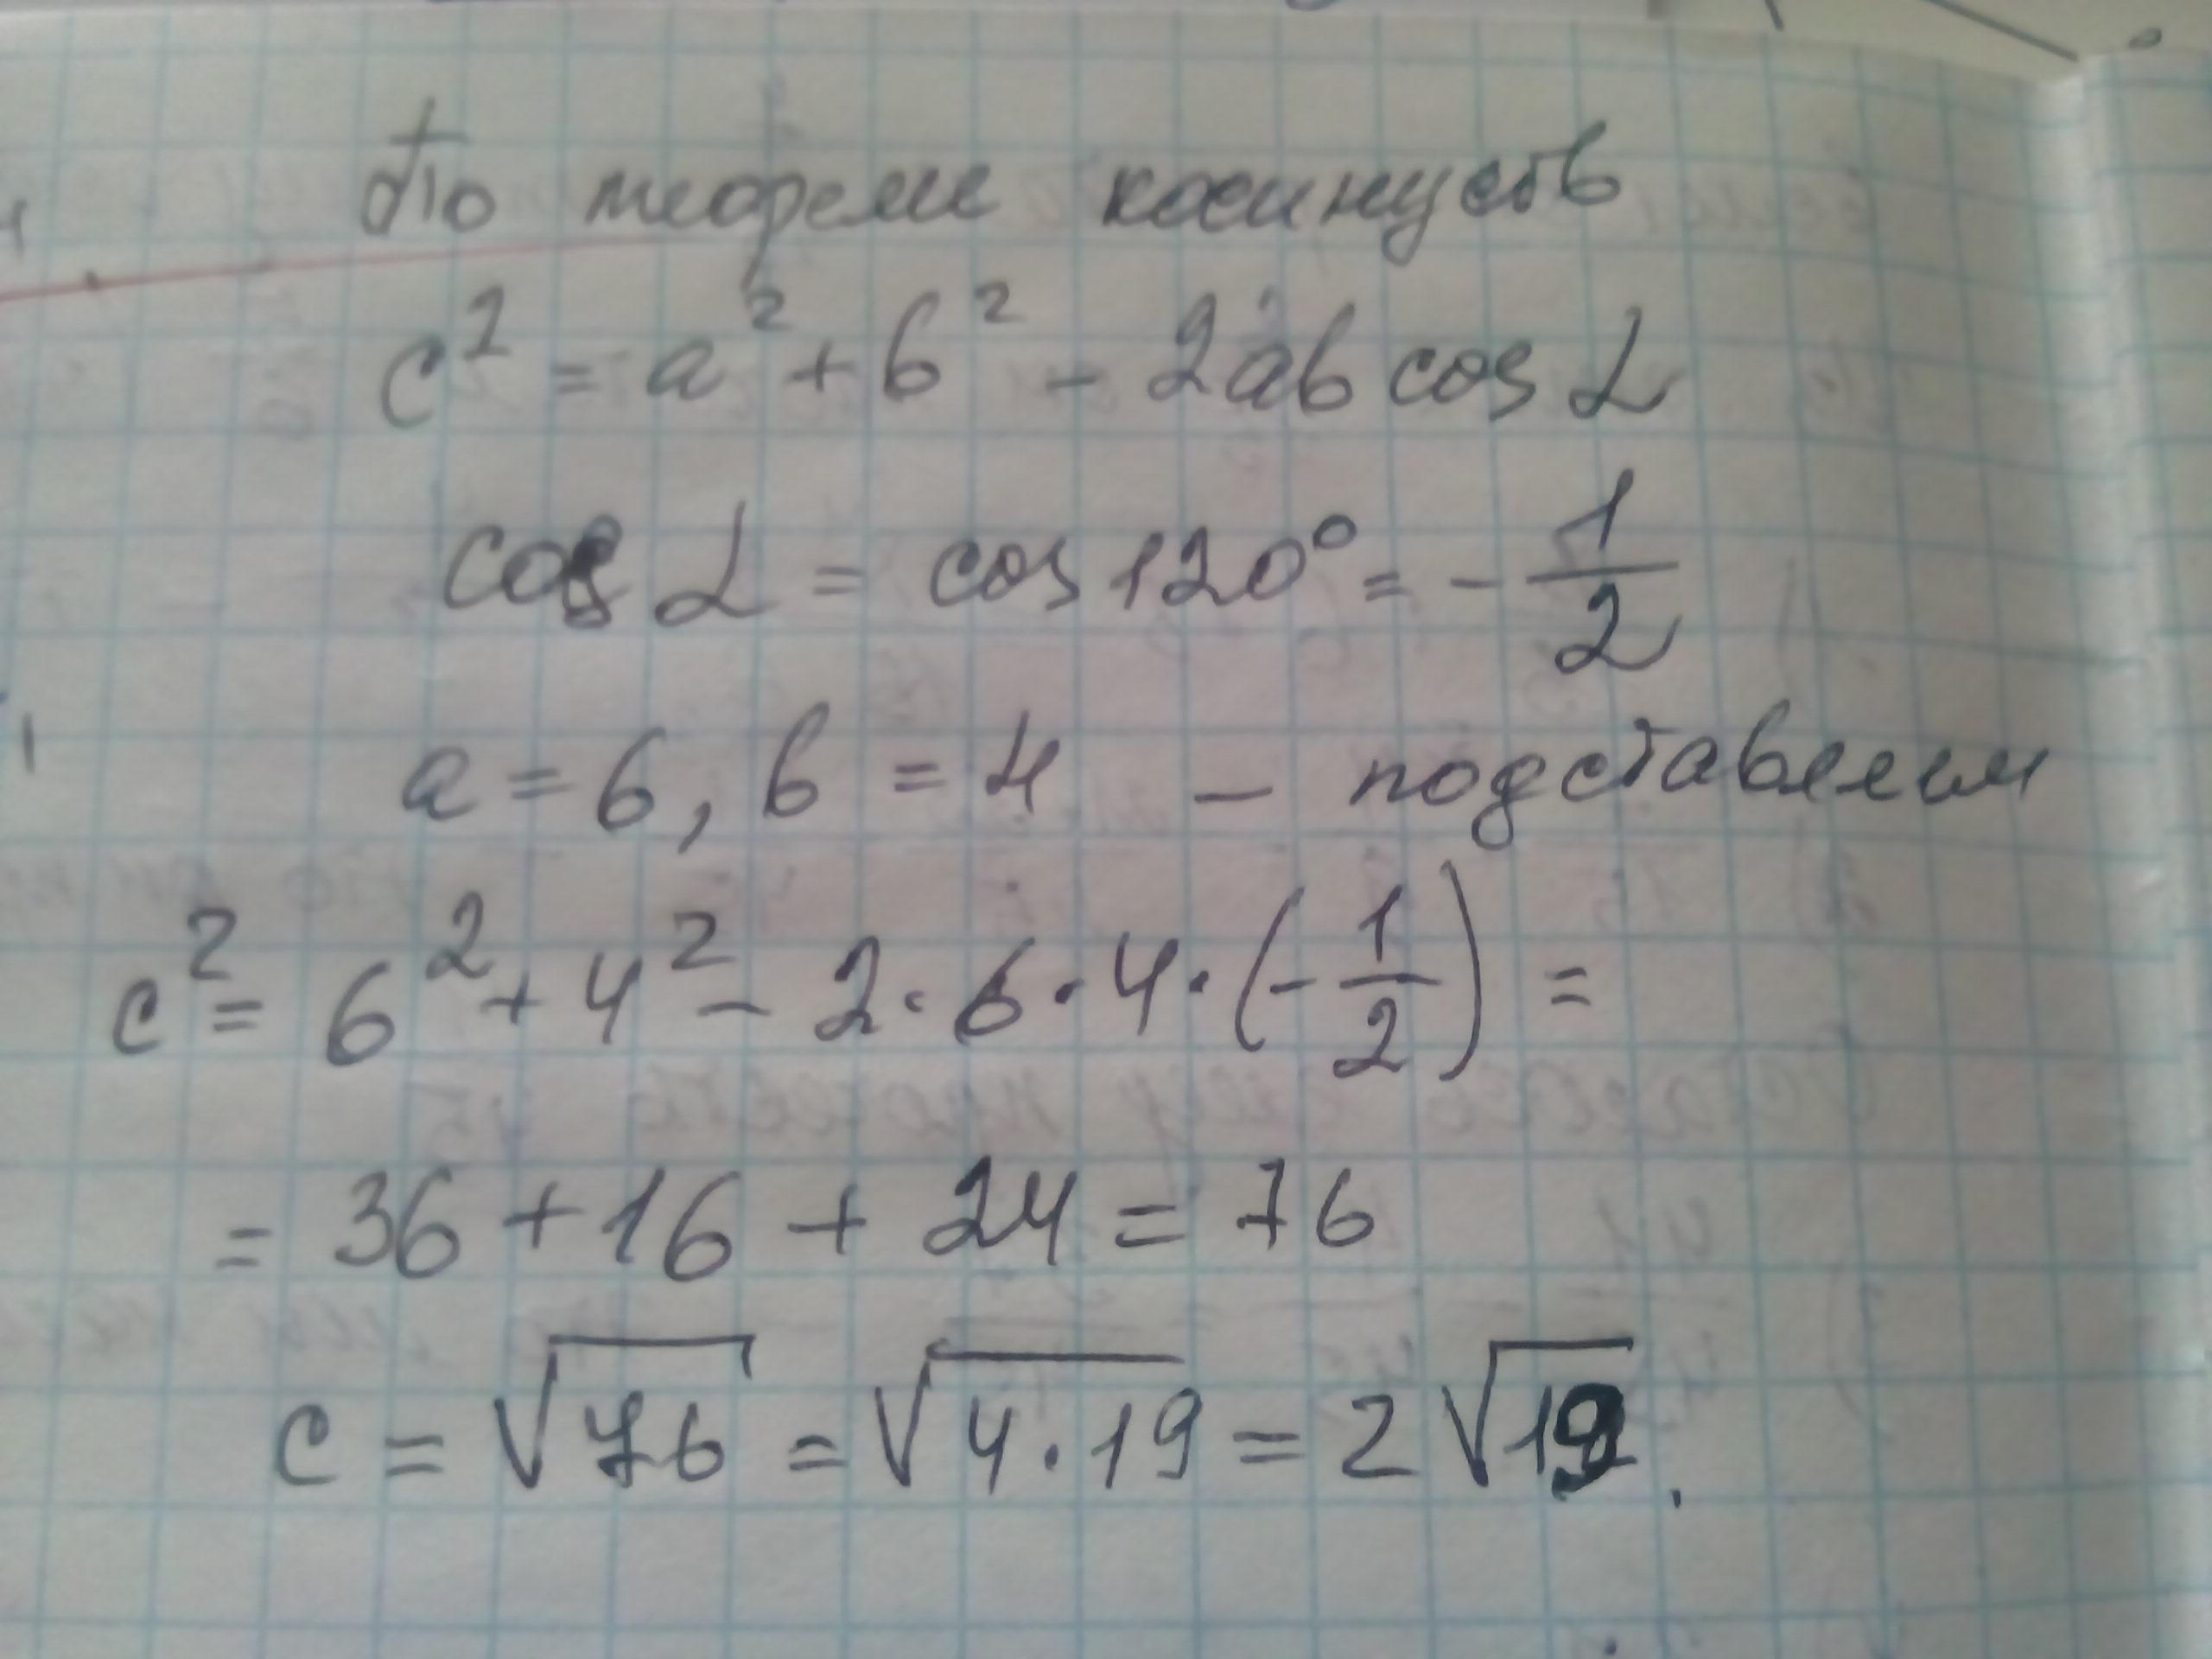 По теореме косинусов
c² = a² + b² - 2ab cos α
cos α = cos 120° = - 1/2
a = 6, b = 4 - подставляем
c² = 6² + 4² - 2 · 6 · 4 · (- 1/2) =
= 36 + 16 + 24 = 76
c = √76 = √4 · 19 = 2 √19.